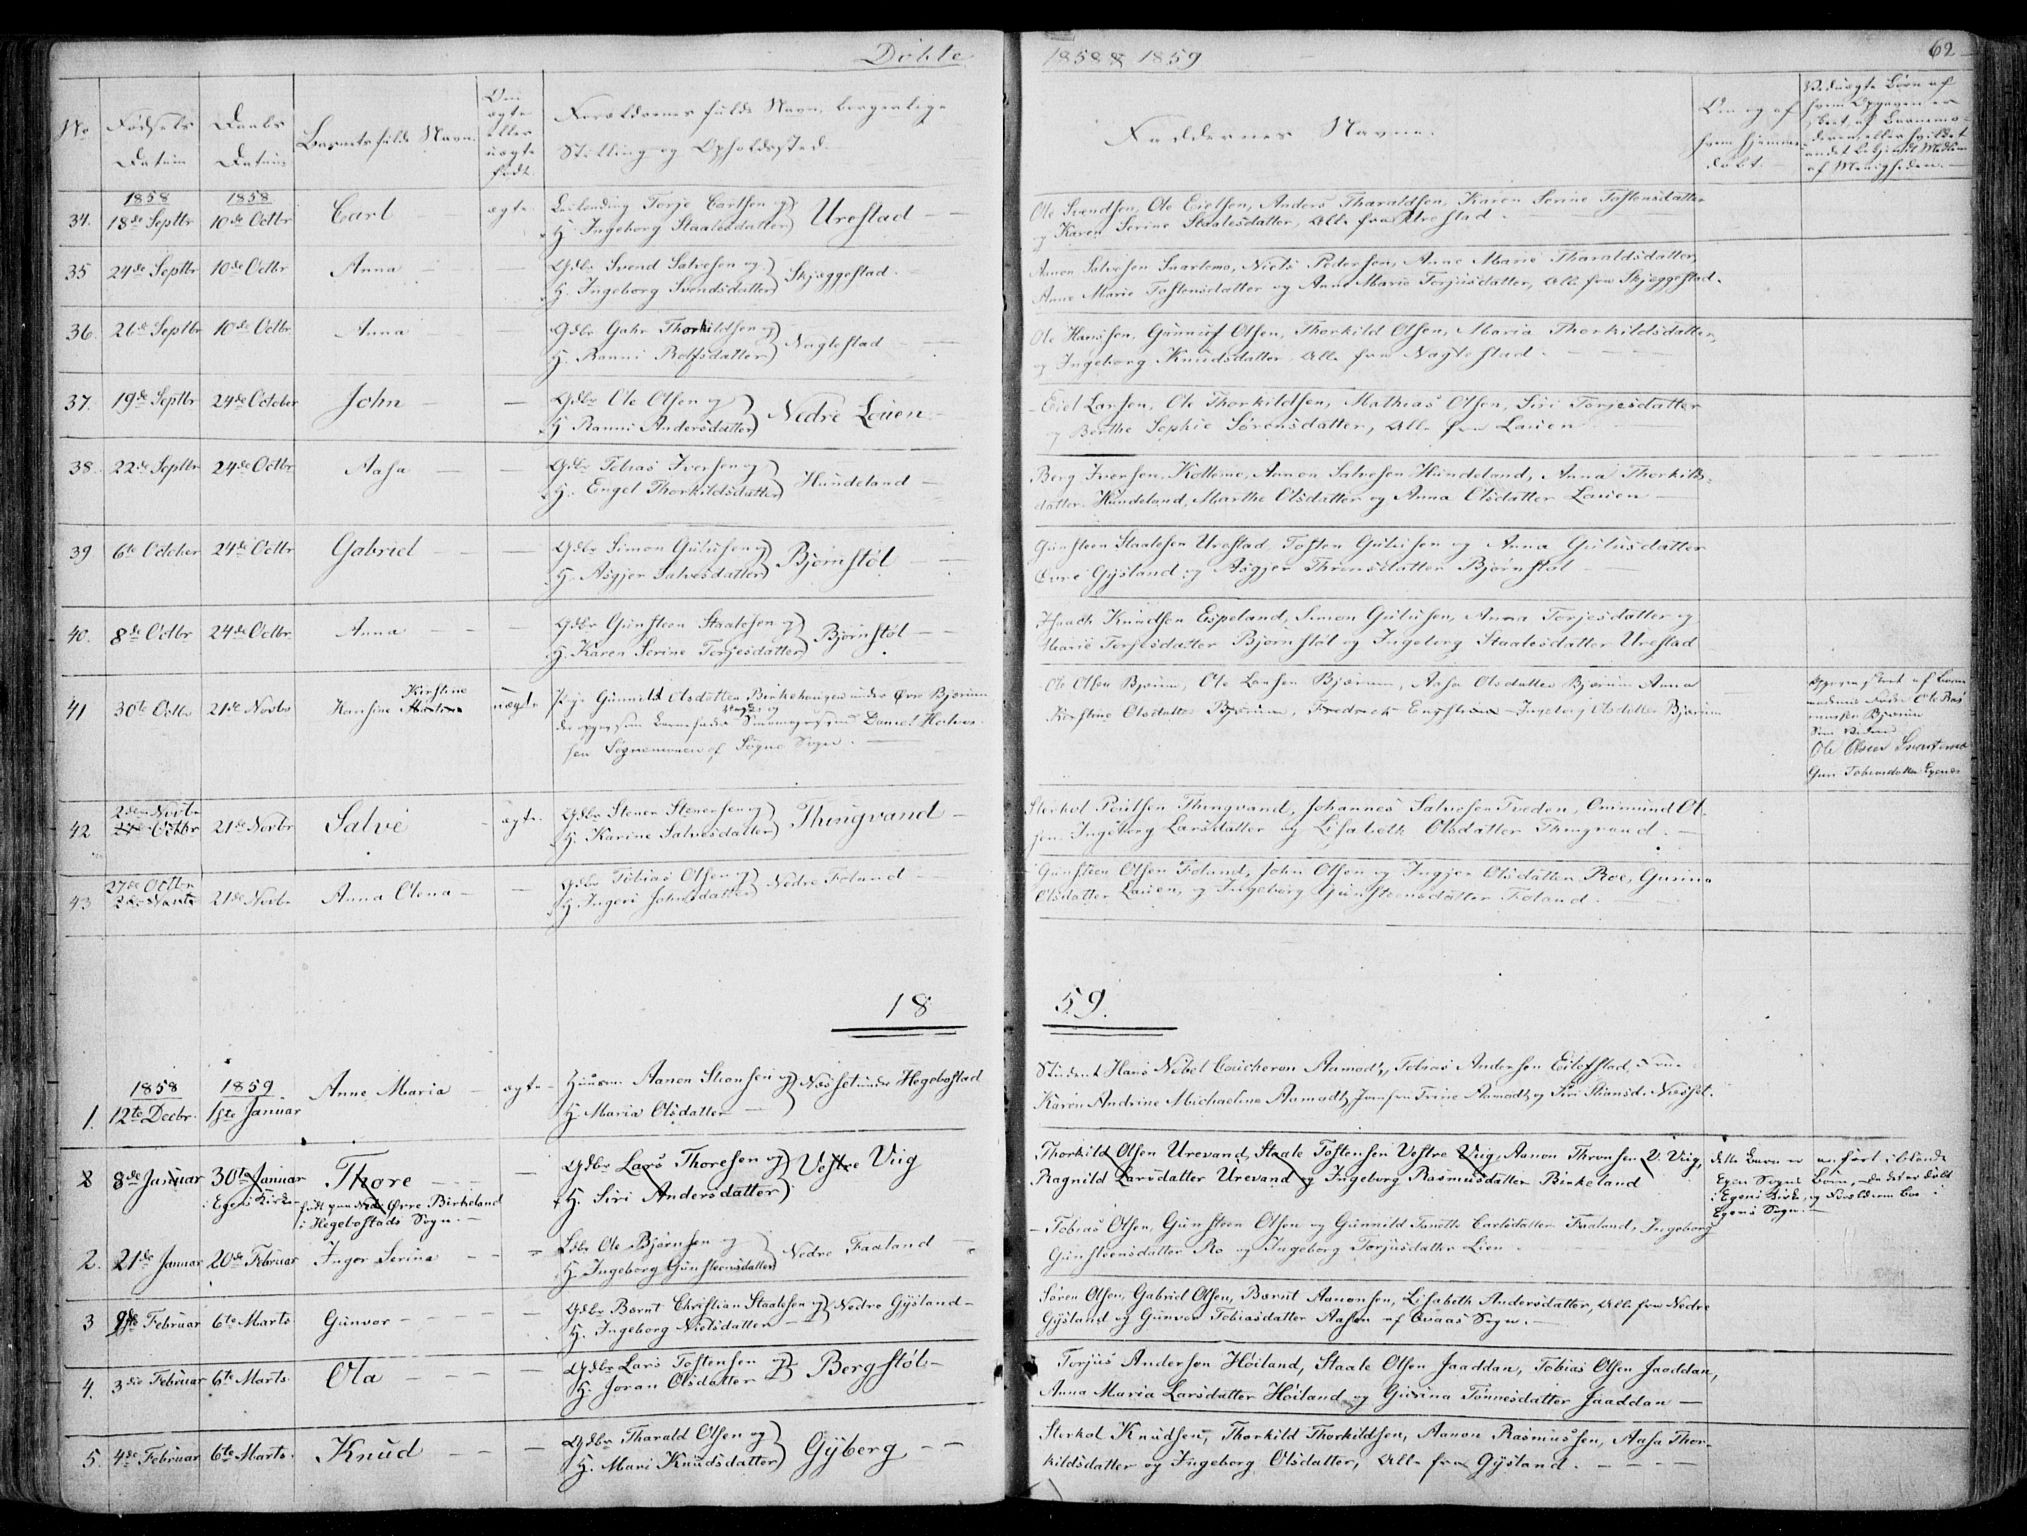 Döbte
1858 & 1859
62
No
Fødsels Datum
Daabs Datum
Barnets fulde Navn.
Om ægte eller uægte født.
Forældrenes fulde Navn, borgerlige
Stilling og Opholdssted.
Faddernes Navne.
Om og af hvem hjemmedøbt.
34. 1858 18de Septbr 1858 10de Octbr Carl ægte. Torje Carlsen og
H. Ingeborg Staalesdatter) Urestad
Ole Svendsen, Ole Eielsen, Anders Tharaldsen, Karen Serine Tostensdatter
og Karen Serine Staalesdatter, alle fra Urestad.
35 24de Septbr 10de Octbr Anna - Gdbr Svend Salvesen og
H. Ingeborg Svendsdatter) Skjæggestad.
Aanon Salvesen Snartemo, Niels Pedersen, Anne Marie Tharaldsdatter,
Anne Marie Tostensdatter og Anne Marie Torjusdatter, alle fra Skjæggestad.
36. 26de Septbr 10de Octbr Anna - Gdbr Gahr Thorkildsen og
H. Ranni Rolfsdatter) Naglestad
Ole Hansen, Gunnuf Olsen, Thorkild Olsen, Maria Thorkildsdatter,
og Ingeborg Knudsdatter, alle fra Naglestad.
37. 19de Septbr 24de October John - Gdbr Ole Olsen og
H. Ranni Andersdatter) Nedre Lauen
Eiel Larsen, Ole Thorkildsen, Mathias Olsen, Siri Torjesdatter
og Berthe Sophie Sørensdatter, alle fra Lauen
38. 22de Septbr 24de Octbr Aasa - Gdbr Tobias Iversen og
H. Engel Thorkildsdatter) Hundeland
Berg Iversen Kollemo, Aanon Salvesen Hundeland, Anna Thorkilds-
datter Hundeland, Marthe Olsdatter og Anna Olsdatter Lauen
39 6te October 24de Octbr Gabriel - Gdbr Simon Gulusen og
H. Asgjer Salvesdatter) Bjørnstøl
Gunsteen Staalesen Urestad, Tosten Gulusen og Anna Gulusdatter
Øvre Gysland og Asgjer Thronsdatter Bjørnstøl
40. 8de Octbr 24de Octbr. Anna - Gdbr Gunsteen Staalesen og
H. Karen Serine Torjesdatter) Bjørnstøl
Knudsen Espeland, Simon Gulusen, Anna Torjesdatter og
Marie Torjesdatter Bjørnstøl og Ingeborg Staalesdatter Urestad
41 30te Octbr 21de Novbr Hansine Kirstine uægte Pige Gunnild Olsdatter Birkehaugen under Øvre Bjærum
der opgav som Barnefader Daniel
Søgne Sogn.
Ole Olsen Bjærum, Ole Larsen Bjærum, Aasa Olsdatter Bjærum Anna
Kirstine Olsdatter Bjærum, Fredrek Ingeborg Olsdatter Bjærum
Ole Olsen Snartemo
Guri Tobiasdatter Egenes
42 2den Novbr 21de Novbr Salve ægte. Gdbr Stener Stenersen og
H. Karine Salvesdatter) Thingvand
Sterkol Poulsen Thingvand, Johannes Salvesen Tveden, Omunmd Ol-
sen, Ingeborg Larsdatter og Lisabeth Olsdatter Thingvand.
43 27de Octbr 21de Novbr Anna Olena - Gdbr Tobias Olsen og
H. Ingeri Johnsdatter) Nedre Foland
Gunsteen Olsen Foland, John Olsen og Ingjer Olsdatter Roe, Gurine
Olsdatter Lauen, og Ingeborg Gunsteensdatter Foland.
1859.
1. 1858 12te Decbr. 1859. 1ste Januar Anne Maria ægte Huusm. Aanon Stiansen og
H. Maria Olsdatter) Næsset under Hegebostad
Student Hans Nobel Coucheron Aamodt, Tobias Andersen Eilefstad,
Karen Andrine Michaeline Aamodt, Jomfru Trine Aamodt og Siri Næsset.
2 8de Januar 30te Januar i Egens Kirke Thore
født paa Øvre Birkeland
i Hegebostads Sogn.
Gdbr Lars Thoresen og
H. Siri Andersdatter) Vestre Viig
Thorkild Olsen Urevand, Staale Tostensen Vestre Viig, Aanon Thronsen V. Viig,
Ragnild Larsdatter Urevand og Ingeborg Rasmusdatter Birkeland
dette Barn er anført iblandt
Egens Sogns Børn, da det er døbt
i Egens Kirke, og Forældrene boe i
Egens Sogn.
2. 21de Januar 20de Februar Inger Serine Ole Bjørnsen og
H. Ingeborg Gunsteensdatter) Nedre Faaland
Tobias Olsen, Gunsteen Olsen og Gunnild Tanette Carlsdatter Faaland, Ingeborg
Gunsteensdatter Ro og Ingeborg Torjusdatter Lien
3 Februar 6te Marts Gunvor - Gdbr Bernt Christian Staalesen og
H. Ingeborg Nielsdatter) Nedre Gysland
Søren Olsen, Gabriel Olsen, Bernt Aanonsen, Lisabeth Andersdatter, alle fra Nedre
Gysland og Gunvor Tobiasdatter Aasen af Qvaas Sogn.
4. 3die Februar 6te Marts Ola - Gdbr Lars Tostensen og
H. Joran Olsdatter) Bergstøl
Torjus Andersen Høiland, Staale Olsen Jaaddan, Tobias Olsen Jaaddan,
Anna Maria Larsdatter Høiland og Gurina Tønnesdatter Jaaddan
5. 4de Februar 6te Marts. Knud - Gdbr Tharald Olsen og
H. Mari Knudsdatter) Gyberg
Sterkol Knudsen, Thorkild Thorkildsen, Aanon Rasmussen, Aasa Thor-
kildsdatter og Ingeborg Olsdatter, alle fra Gysland.